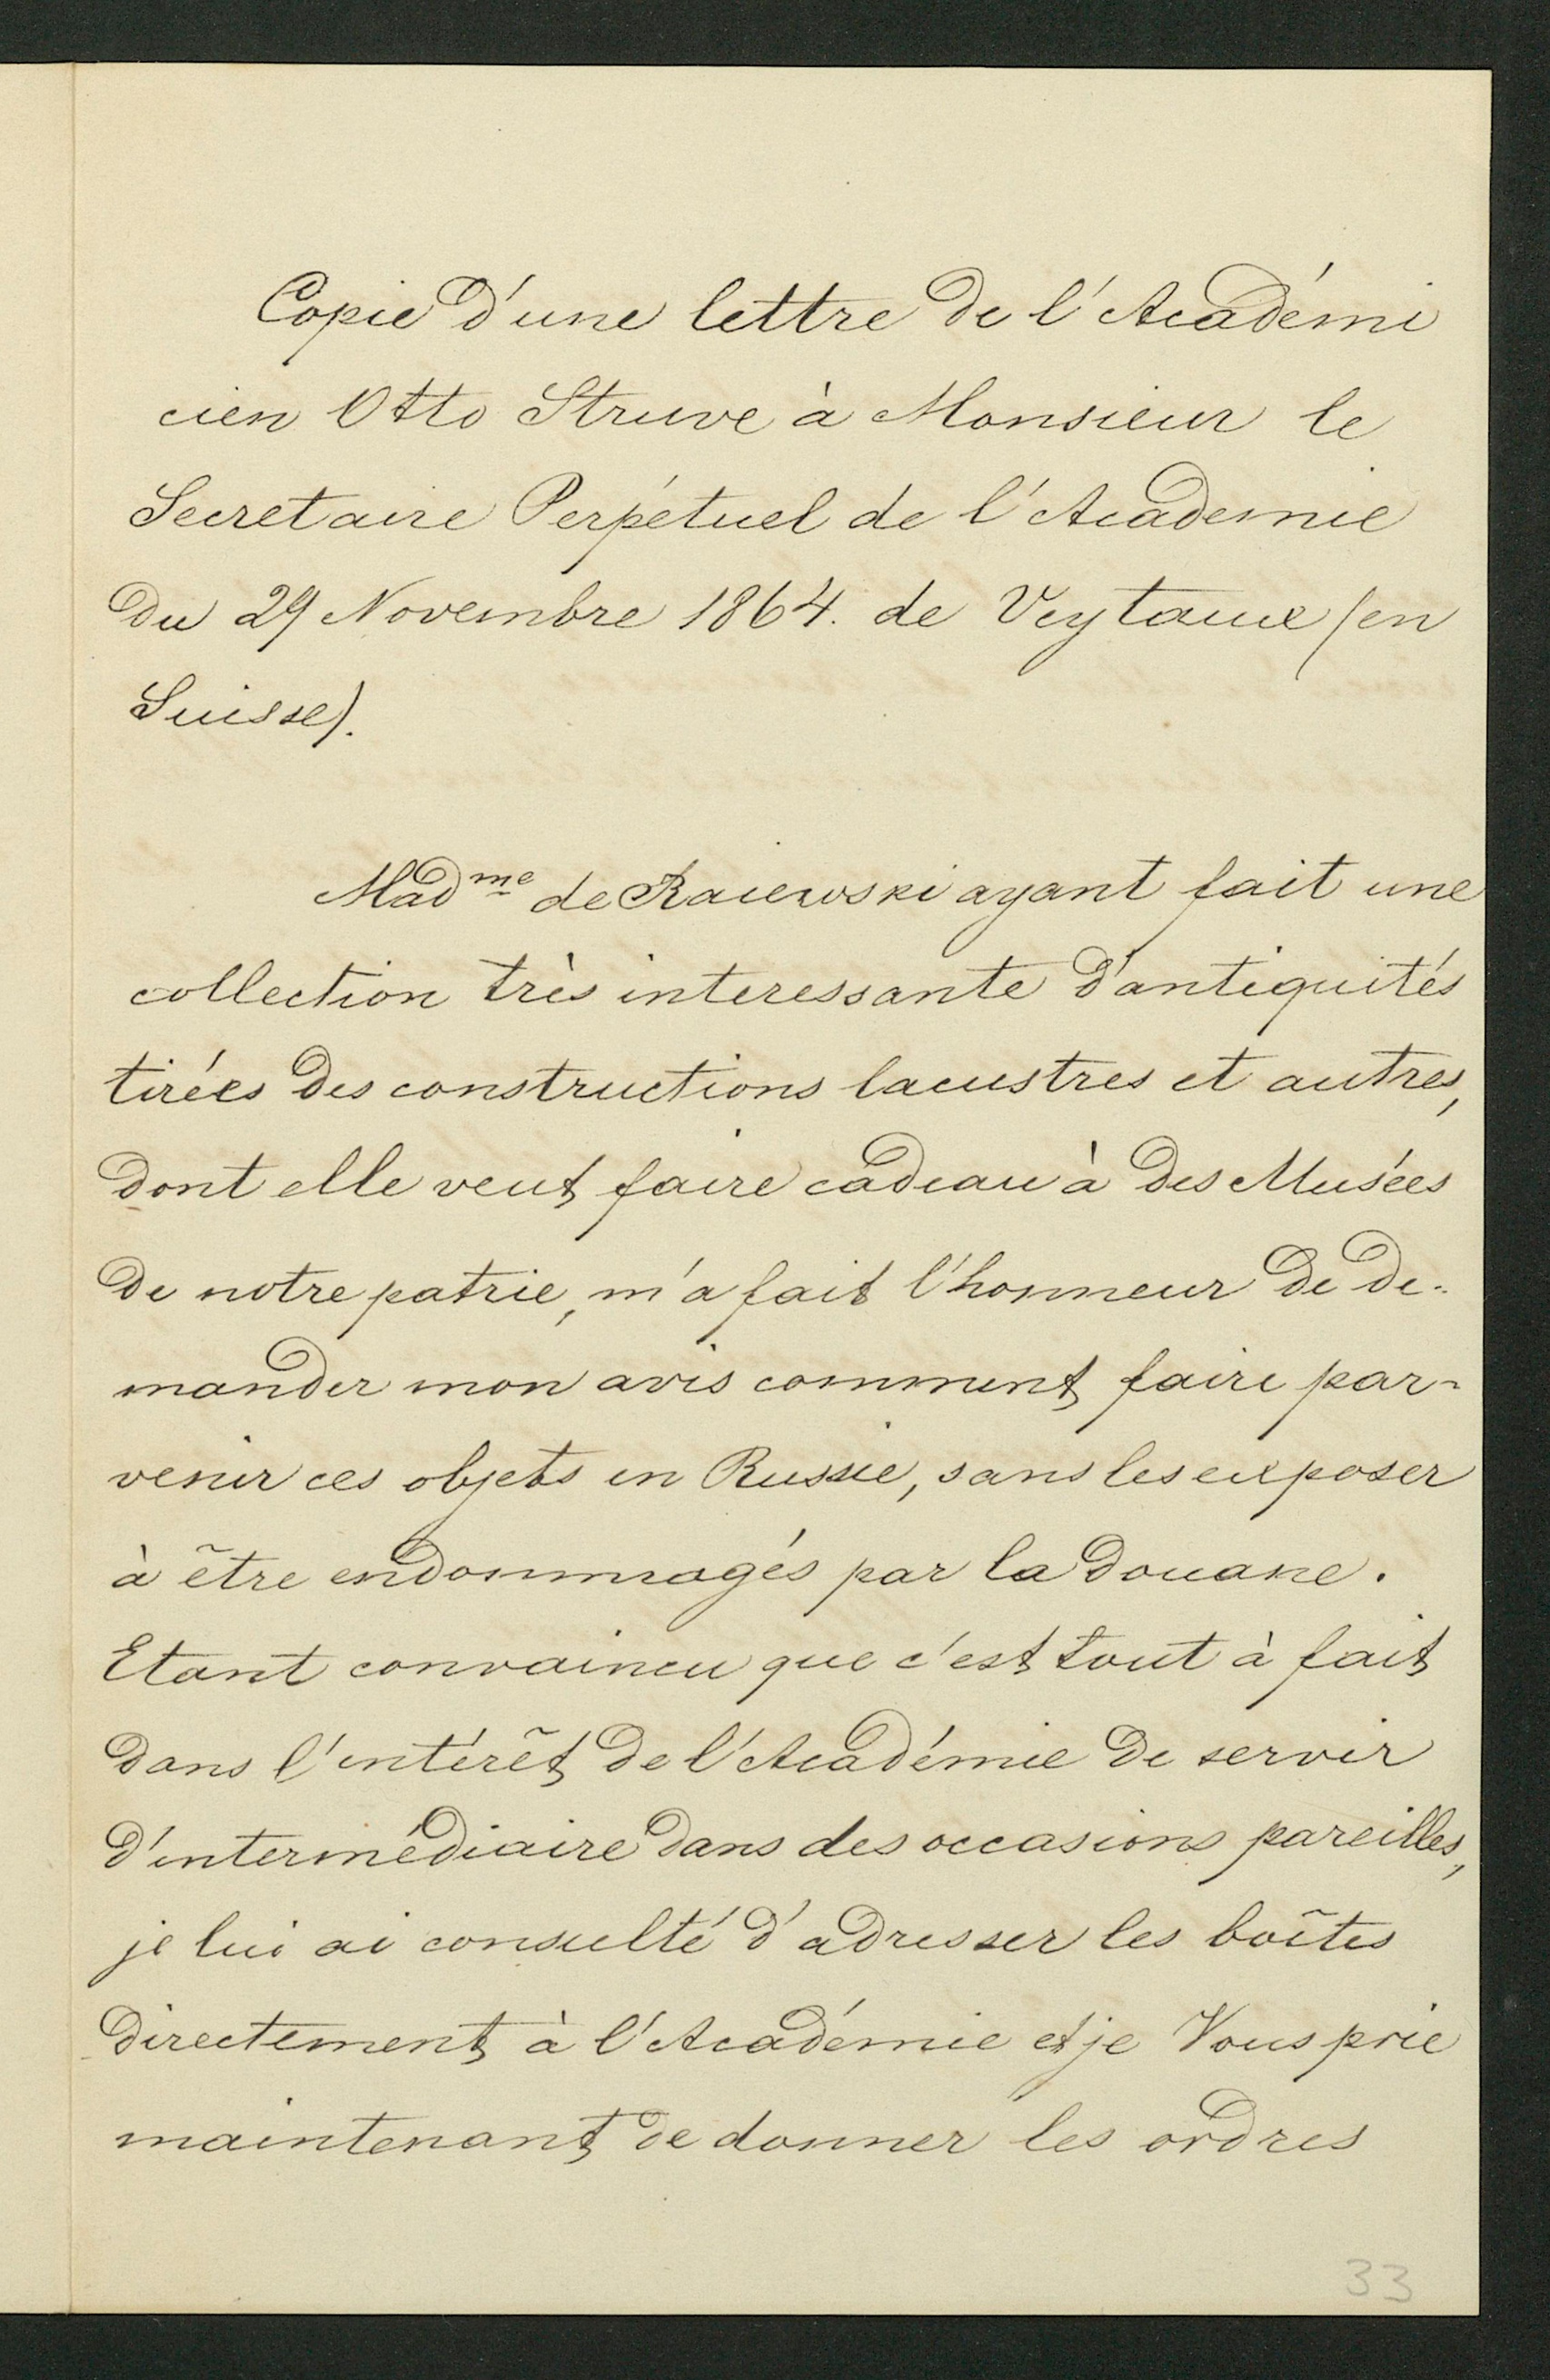 Copie d'une lettre de l'Académi
cien Otto Struve à Monsieur le
Secretaire Perpétuel de l'Academie
du 29 Novembre 1864. de Veytaux (en
Suisse).
Mad^me de Raiewski ayant fait une
collection très interessante d'antiquités
tirées des constructions lacustres et autres,
dont elle veut faire cadeau à des Musées
de notre patrie, m'a fait l'honneur de de-
mander mon avis comment faire par-
venir ces objets en Russie, sans les exposer
à être endommagés par la douane.
Etant convaincu que c'est tout à fait
dans l'intérêt de l'Académie de servir
d'intermédiaire dans des occasions pareilles,
je lui ai consulté d'adresser les boîtes
directement à l'Académie et je Vous prie
maintenant de donner les ordres
33